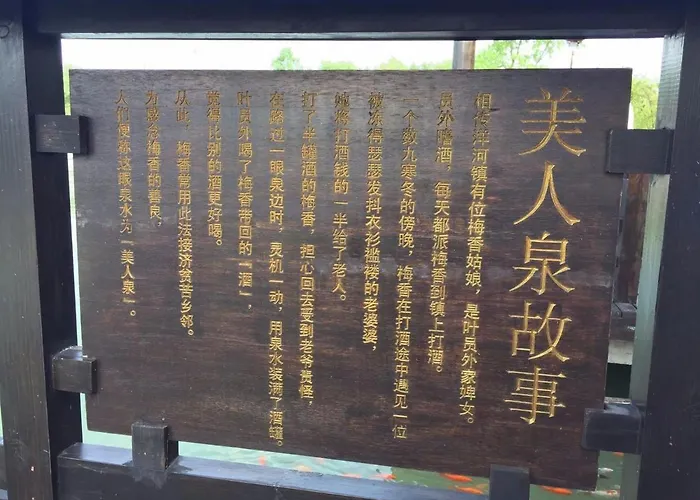 美人泉故事
相传洋河镇有位梅香姑娘，是叶员外家婢女。
员外嗜酒，每天都派梅香到镇上打酒。
一个数九寒冬的傍晚，梅香在打酒途中遇见一位
被冻得瑟瑟发抖衣衫褴楼的老婆婆，
她将打酒钱的一半给了老人。
打了半罐酒的梅香，担心回去受到老爷责怪，
在路过一眼泉边时，灵机一动，用泉水装满了酒罐。
叶员外喝了梅香带回的“酒”，
觉得比别的酒更好喝。
从此，梅香常用此法接济贫苦乡邻。
为感念梅香的善良，
人们便称这眼泉水为“美人泉”。